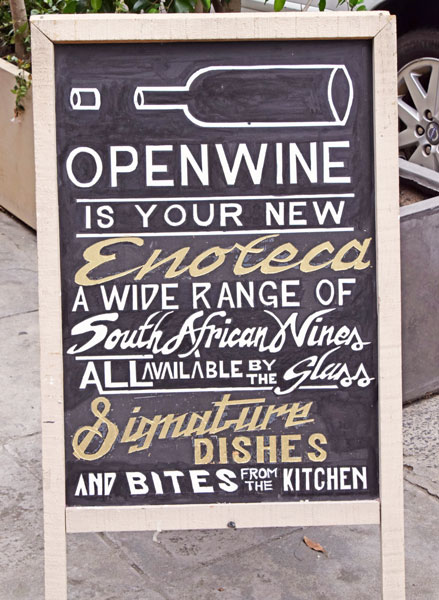 OPENWINE
IS YOUR NEW
Enoteca
A WIDE RANGE OF
South African Wines
ALL AVAILABLE BY THE Glass
Signature
DISHES
AND BITES FROM THE KITCHEN